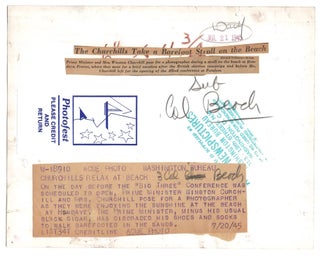 3
JUL 21 1945
The Churchills Take a Barefoot Stroll on the Beach
Prime Minister and Mrs. Winston Churchill pose for a photographer during a stroll on the beach at Hendaye, France, where they went for a brief vacation after the British election campaign and before the Churchill left for the opening of the Allied conference at Potsdam.
Sub
Col Beach
Photofest
PLEASE CREDIT
AND
RETURN
W-18910 ACME PHOTO WASHINGTON BUREAU
CHURCHILLS RELAX AT BEACH
3 Col Beach
ON THE DAY BEFORE THE "BIG THREE" CONFERENCE WAS
SCHEDULED TO OPEN, PRIME MINISTER WINSTON CHURCH-
ILL AND MRS. CHURCHILL POSE FOR A PHOTOGRAPHER
AS THEY WERE ENJOYING THE SUNSHINE AT THE BEACH
AT HENDAYE. THE PRIME MINISTER, MINUS HIS USUAL
BLACK CIGAR, HAS DISCARDED HIS SHOES AND SOCKS
TO WALK BAREFOOTED IN THE SAND.
CREDITLINE ACME PHOTO 7/20/45